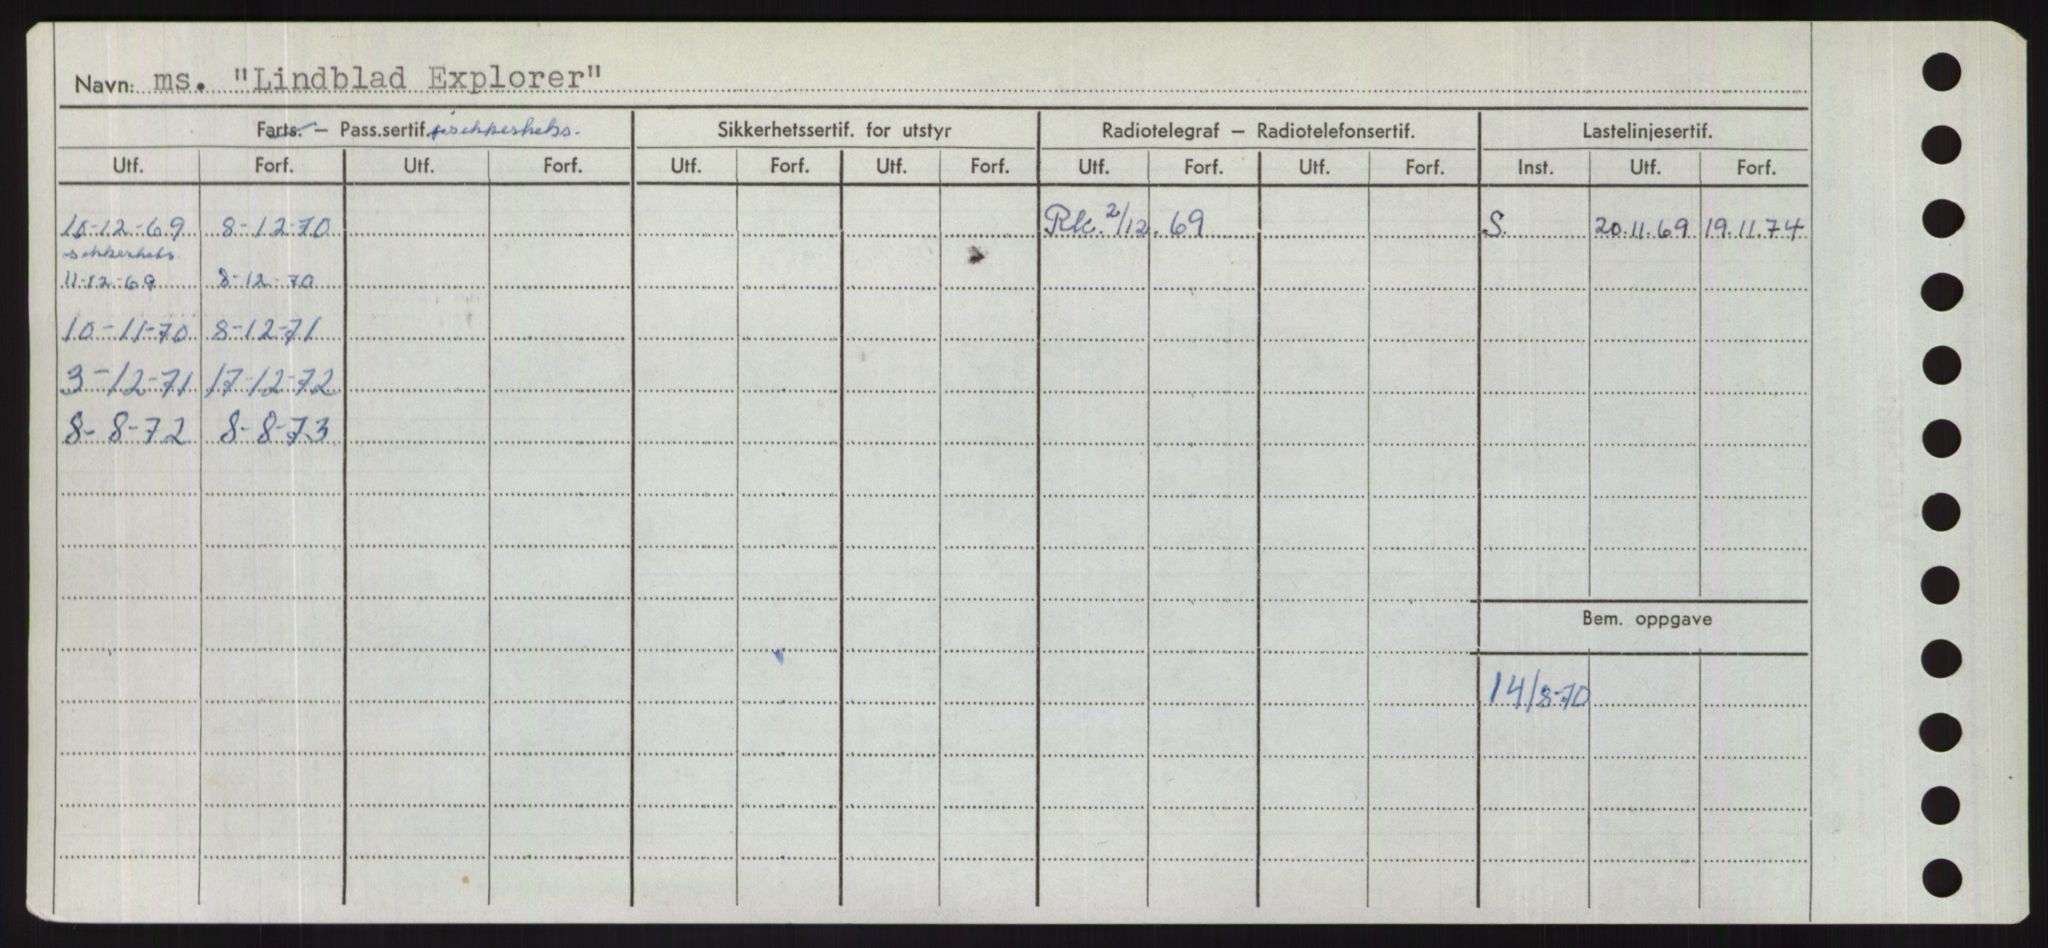 Navn: ms. "Lindblad Explorer"
Farts. – Pass.sertif. sikkerhets. Sikkerhetssertif. for utstyr Radiotelegraf – Radiotelefonsertif. Lastelinjesertif.
Utf. Forf. Utf. Forf. Utf. Forf. Utf. Forf. Utf. Forf. Utf. Forf. Inst. Utf. Forf.
10-12-69 8-12-70 2/12.69 S. 20.11.69 19.11.74
sikkerhets
11-12-69 8-12-70
10-11-70 8-12-71
3-12-71 17-12-72
8-8-72 8-8-73
Bem. oppgave
14/8-70